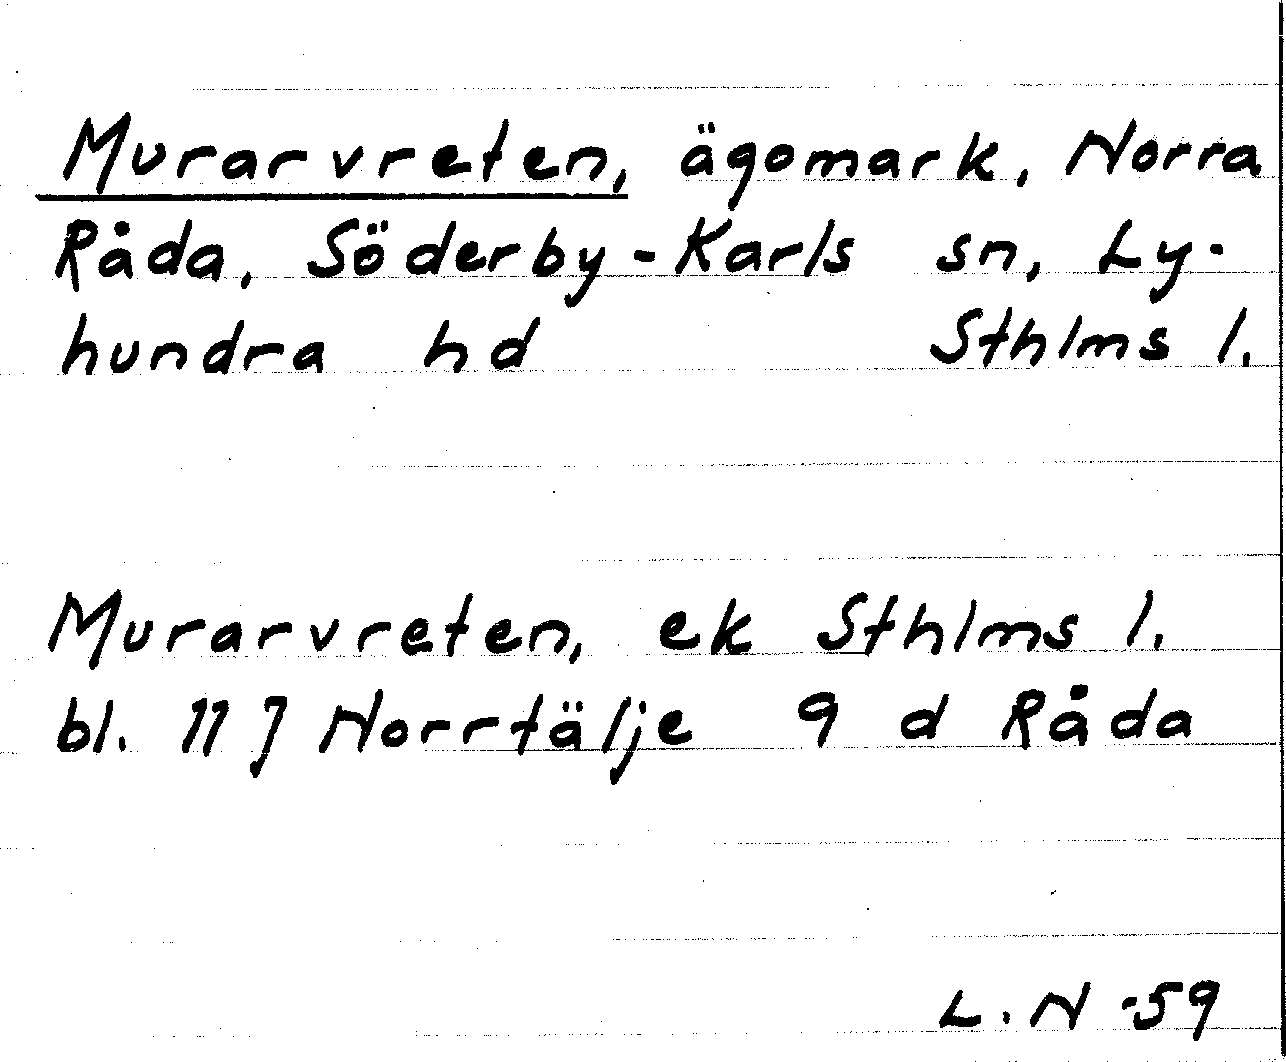 Murarvreten, ägomark, Norra
Råda, Söderby-Karls sn, Ly-
hundra hd Sthlms l.
Murarvreten, ek Sthlms l.
bl. 11 J Norrtälje 9 d Råda
L. N -59